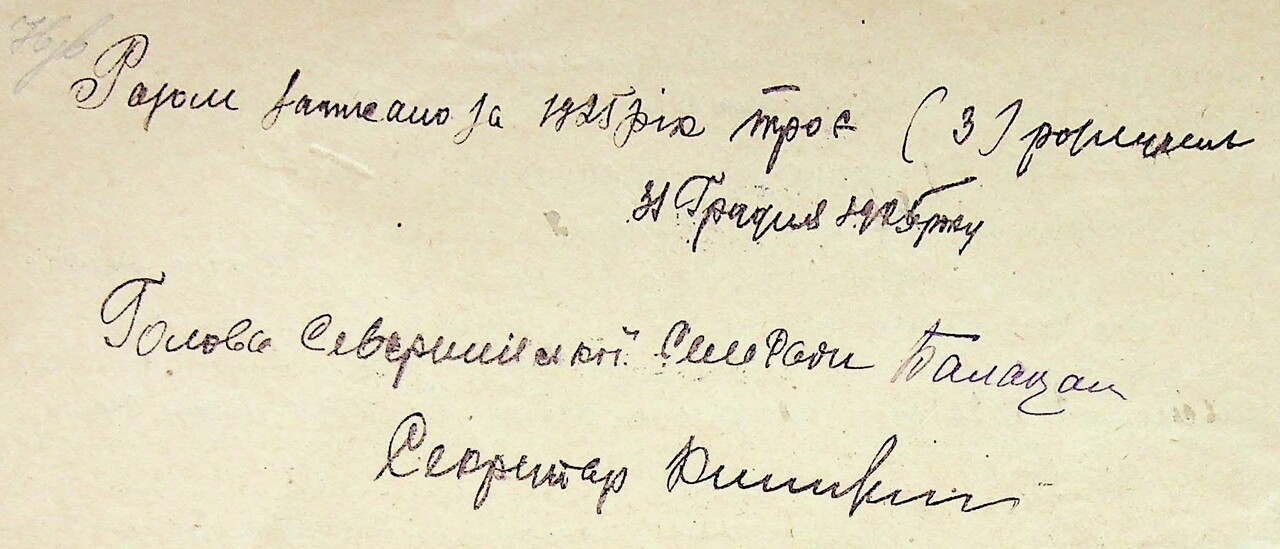 Разом записано за 1925 рік троє (3) розлучень
31 Грудня 1925 року
Голова Северинівської СельРади Балацан
Секретар